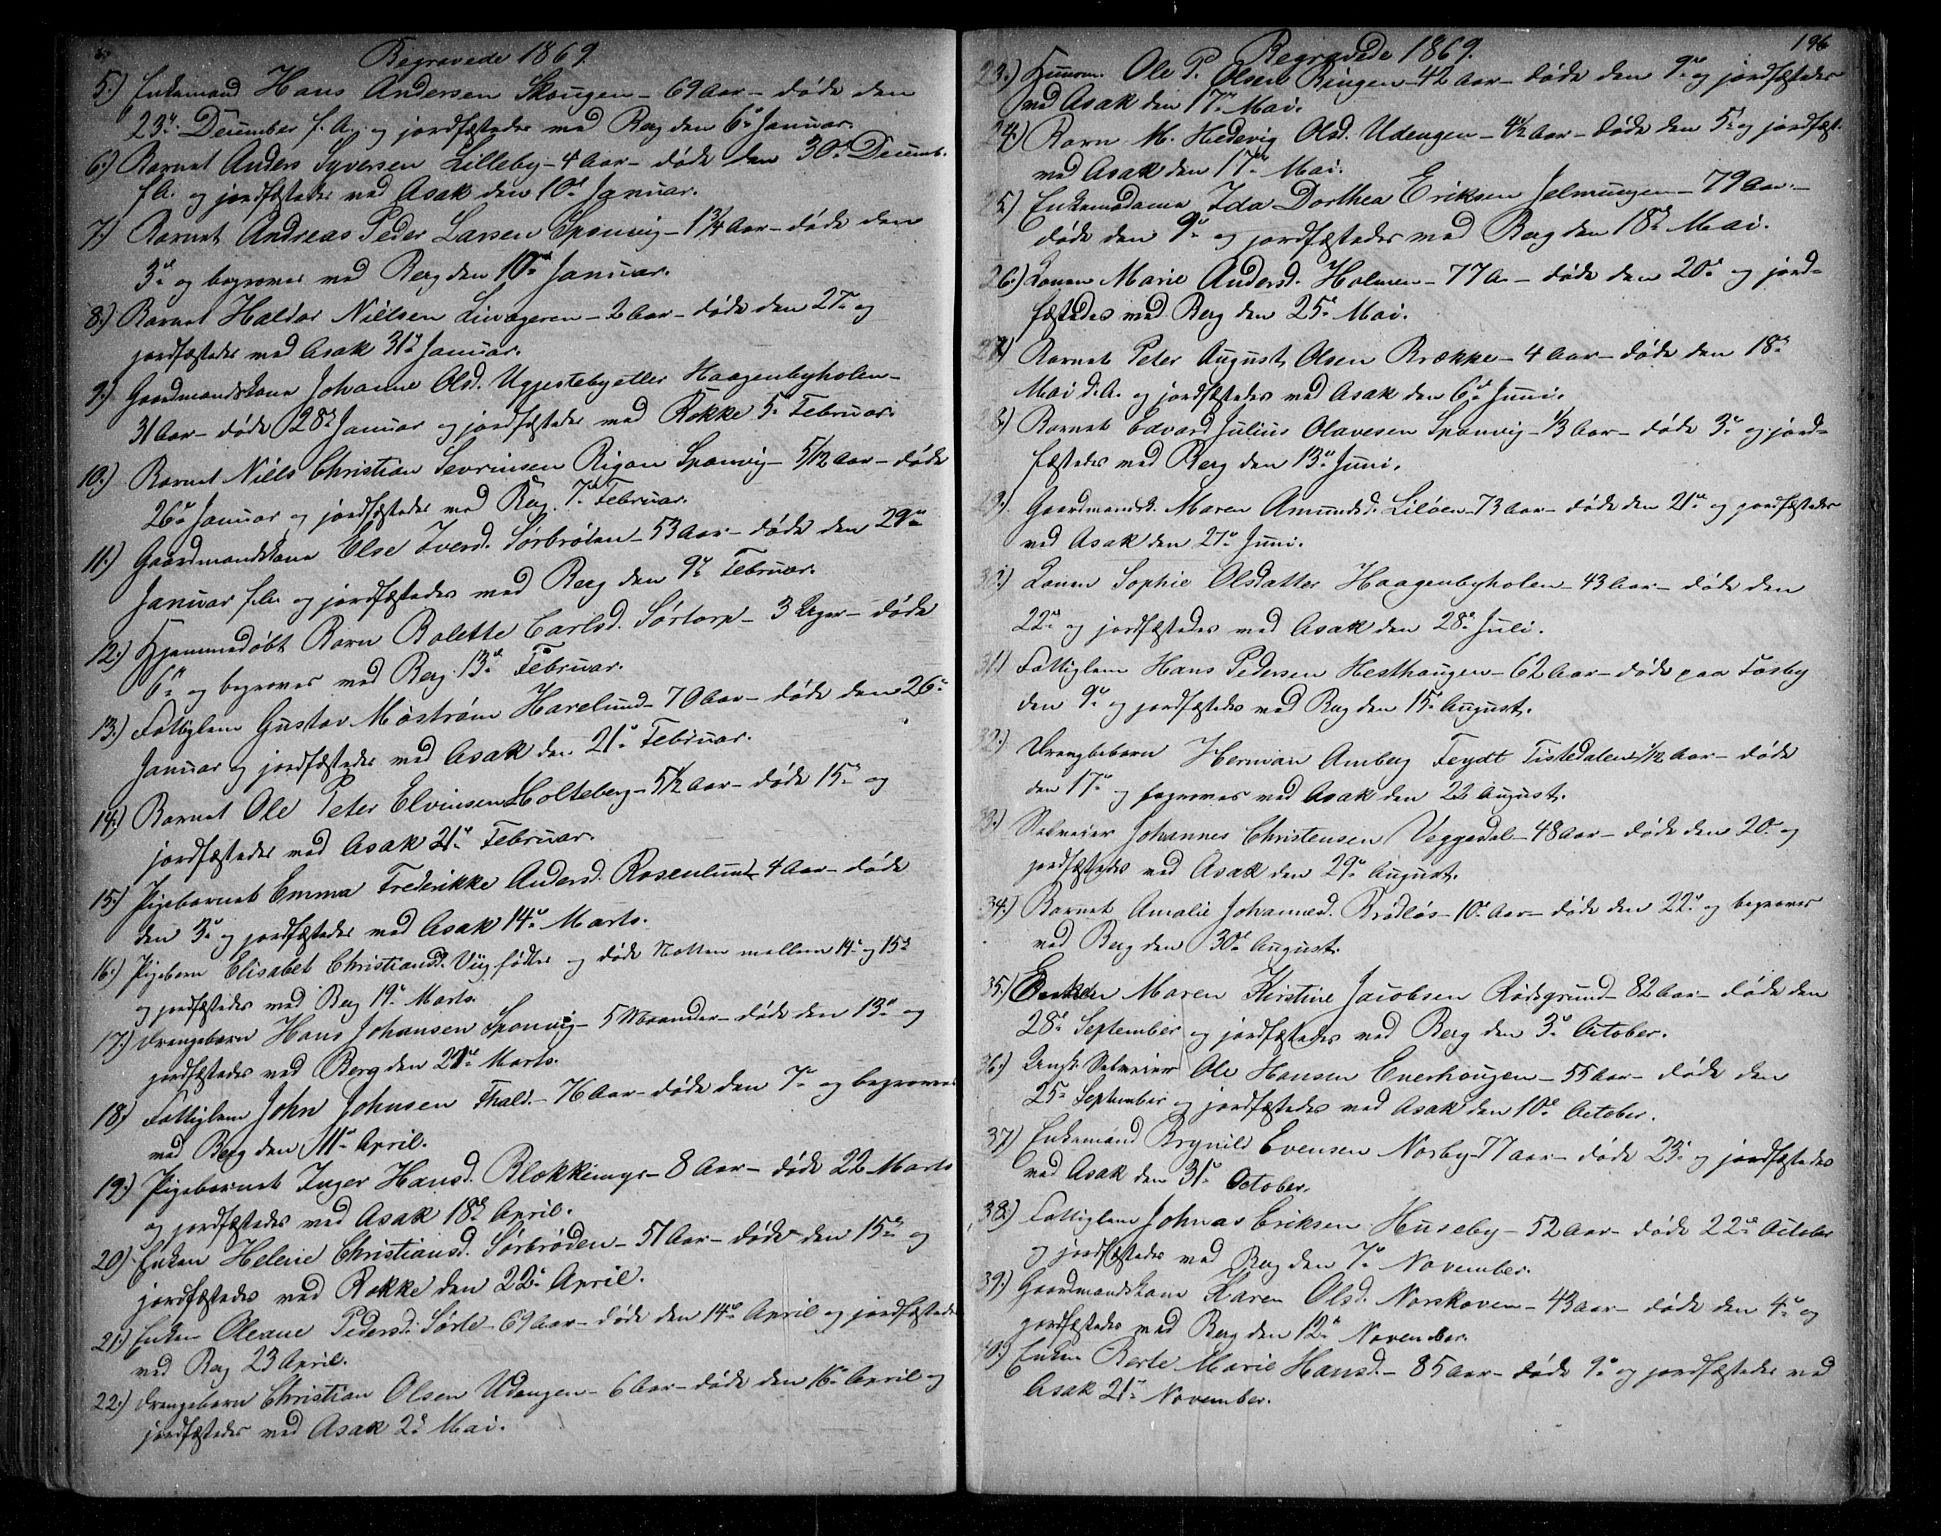 Begravede 1869.
5.) Enkemand Hans Andersen Skougen – 69 Aar – døde den
29de December f. A. og jordfæstedes ved Berg den 6te Januar.
6.) Barnet Anders Syversen Lilleby – 4 Aar – døde den 30te Decemb.
f. A. og jordfæstedes ved Asak den 10de Januar.
7.) Barnet Andreas Peder Larsen Sponvig – 1 3/4 Aar – døde den
3de og begroves ved Berg den 10de Januar.
8.) Barnet Haldor Nielsen – 2 Aar – døde den 27de og
jordfæstedes ved Asak 31te Januar.
9.) Gaardmandskone Johanne Olsd. Ugjestebyeller Haagenbyholen –
31 Aar – døde 28de Januar og jordfæstedes ved Rokke 5te Februar.
10.) Barnet Niels Christian Sevrinsen Rigou Sponvig – 5/12 Aar – døde
26de Januar og jordfæstedes ved Berg 7de Februar.
11.) Gaardmandskone Else Iversd. Sørbrøden – 53 Aar – døde den 29de
Januar og jordfæstedes ved Berg den 9de Februar.
12.) Hjemmedøbt Barn Bolette Carlsd. Sørtorp – 3 Uger – døde
6te og begroves ved Berg 13de Februar.
13.) Fattiglem Gustav Møstrøm Harelund – 70 Aar – døde den 26de
Januar og jordfæstedes ved Asak den 21de Februar.
14.) Barnet Ole Peter Elvinsen Holteberg – 5 1/2 Aar – døde 15de og
jordfæstedes ved Asak 21de Februar.
15.) Pigebarnet Emma Frederikke Andersd. Rosenlund – 4 Aar – døde
den 3de og jordfæstedes ved Asak 14de Marts.
16.) Pigebarn Elisabet Christiansd. Viig fødtes og døde Natten mellem 14de og 15de
og jordfæstedes ved Berg 19de Marts.
17.) Drengebarn Hans Johansen Sponvig – 5 Maaneder – døde den 13de og
jordfæstedes ved Berg den 21de Marts.
18.) Fattiglem John Johnsen Thal. – 76 Aar – døde den 7de og begroves
ved Berg den 11te April.
19.) Pigebarnet Inger Hansd. – 8 Aar – døde 22 Marts
og jordfæstedes ved Asak 18de April.
20.) Enken Helene Christiansd. Sørbrøden – 51 Aar – døde den 15de og
jordfæstedes ved Rokke den 22de April.
21.) Enken Oleane Pedersd. Sørle – 69 Aar – døde den 14de April og jordfæstedes
ved Berg 23 April.
22.) Drengebarn Christian Olsen Udengen – 6 Aar – døde den 16de April og
jordfæstedes ved Asak 2de Mai.
Begravede 1869.
196
23.) Huusm. Ole P. Olsen Ringen – 42 Aar – døde den 9de og jordfæstedes
ved Asak den 17de Mai.
24.) Barn M. Hedevig Olsd. Udengen – 4 1/2 Aar – døde den 5te og jordfæst.
ved Asak den 17de Mai.
25.) Enkemadame Ida Dorthea Eriksen – 79 Aar. –
døde den 9de og jordfæstedes ved Berg den 18de Mai.
26.) Konen Marie Andersd. Holmen – 77 A – døde den 20de og jord-
fæstedes ved Berg den 25de Mai.
27.) Barnet Peter August Olsen Brække – 4 Aar – døde den 18de
Mai d. A. og jordfæstedes ved Asak den 6te Juni.
28.) Barnet Edvard Julius Olavesen Sponvig – 1/3 Aar – døde 3de og jord-
fæstedes ved Berg den 13de Juni.
29.) Gaardmandsk. Maren Amundsd. Liløen – 73 Aar – døde den 21de og jordfæstedes
ved Asak den 27de Juni.
30.) Konen Sophie Olsdatter Haagenbyholen – 43 Aar – døde den
22de og jordfæstedes ved Asak den 28de Juli.
31.) Fattiglem Hans Pedersen Hesthaugen – 62 Aar – døde paa Fosby
den 9de og jordfæstedes ved Berg den 15de August.
32.) Drengebarn Herman Amberg Feydt Tistedalen 1/12 Aar – døde
den 17de og begroves ved Asak den 22 August.
33.) Selveier Johannes Christensen Veggedal – 48 Aar – døde den 20de og
jordfæstedes ved Asak den 29de August.
34.) Barnet Amalie Johannesd. Brødløs – 10 Aar – døde den 22de og begroves
ved Berg den 30te August.
35.) Enken Maren Kirstine Jacobsen Rødsgrund – 82 Aar – døde den
28de September og jordfæstedes ved Berg den 3de October.
36.) Selveier Ole Hansen Enerhougen – 55 Aar – døde den
25de September og jordfæstedes ved Asak den 10de October.
37.) Enkemand Brynild Evensen Nosby – 77 Aar – døde 23de og jordfæstedes
ved Asak den 31te October.
38.) Fattiglem Johnas Eriksen Huseby – 52 Aar – døde 22de October
og jordfæstedes ved Berg den 7de November.
39.) Gaardmandskone Karen Olsd. Norskoven – 43 Aar – døde den 4de og
jordfæstedes ved Berg den 12te November.
40.) Enken Berte Marie Hansd. – 85 Aar – døde 9de og jordfæstedes ved
Asak 21de November.